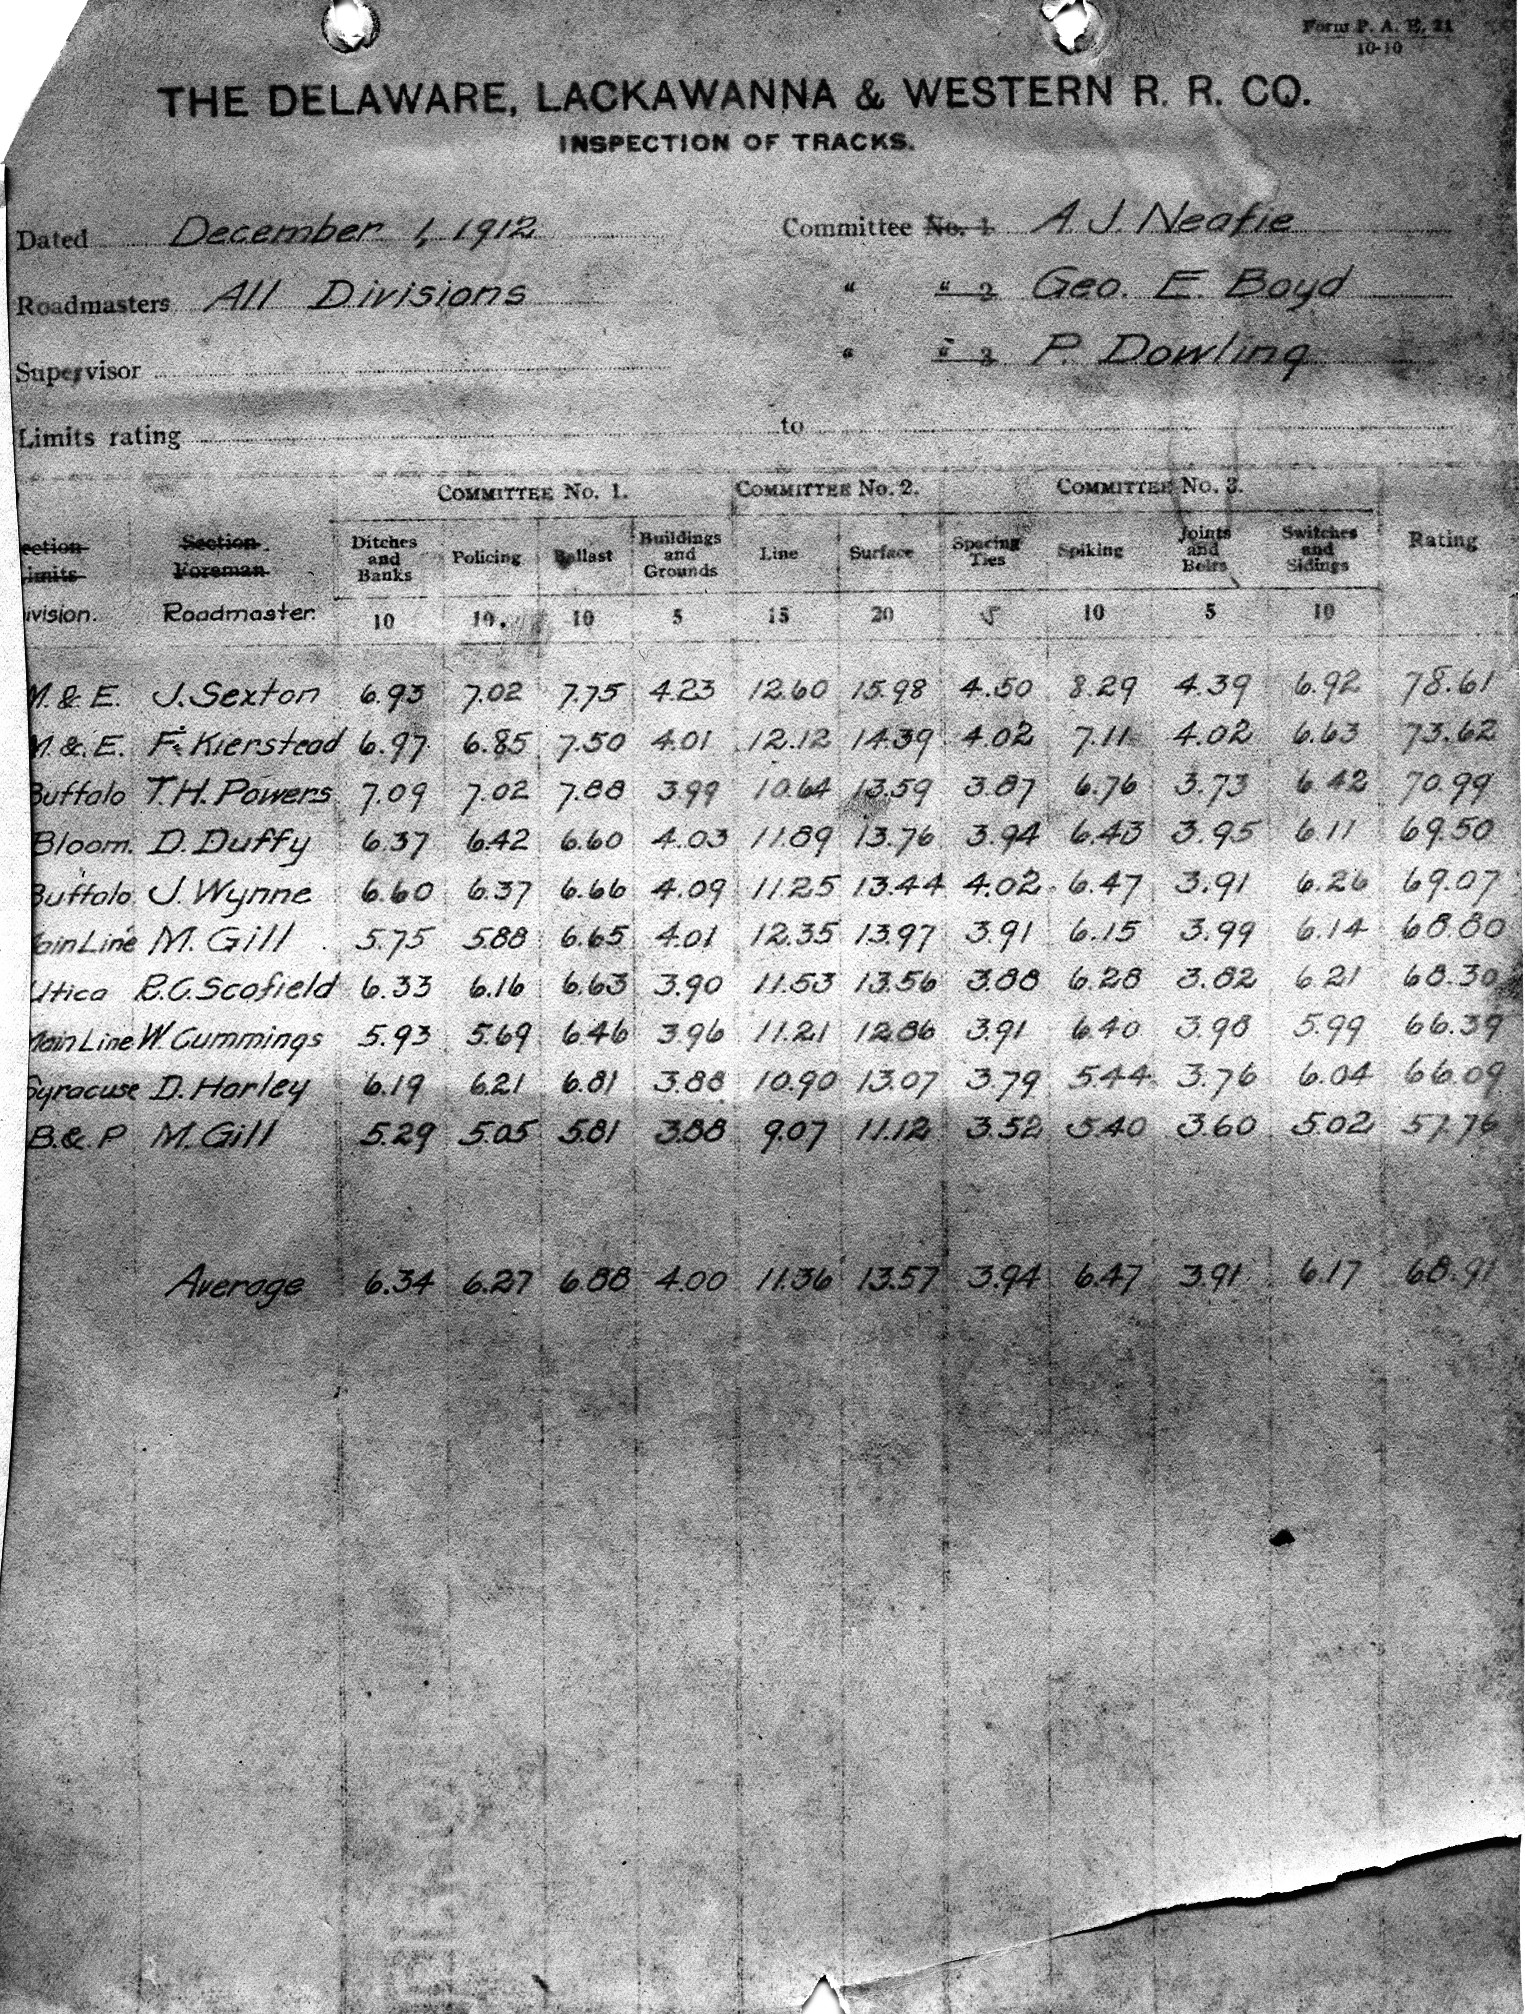 Form P. A. E. 21
10-10
THE DELAWARE, LACKAWANNA & WESTERN R. R. CO.
INSPECTION OF TRACKS.
Dated December 1, 1912 Committee No. 1 A. J. Neafie
Roadmasters All Divisions " " 2 Geo. E. Boyd
Supervisor " " 3 P. Dowling
Limits rating to
COMMITTEE No. 1. COMMITTEE No. 2. COMMITTEE No. 3.
ection Section Ditches Buildings Spacing Joints Switches
imits Foreman and Policing Ballast and Line Surface Ties Spiking and and Rating
Banks Grounds Bolts Sidings
ivision. Roadmaster. 10 10. 10 5 15 20 5 10 5 10
M. & E. J. Sexton 6.93 7.02 7.75 4.23 12.60 15.98 4.50 8.29 4.39 6.92 78.61
M. & E. F. Kierstead 6.97 6.85 7.50 4.01 12.12 14.39 4.02 7.11 4.02 6.63 73.62
Buffalo T. H. Powers 7.09 7.02 7.88 3.99 10.64 13.59 3.87 6.76 3.73 6.42 70.99
Bloom. D. Duffy 6.37 6.42 6.60 4.03 11.89 13.76 3.94 6.43 3.95 6.11 69.50
Buffalo J. Wynne 6.60 6.37 6.66 4.09 11.25 13.44 4.02 6.47 3.91 6.26 69.07
ain Line M. Gill 5.75 5.88 6.65 4.01 12.35 13.97 3.91 6.15 3.99 6.14 68.80
Utica R. C. Scofield 6.33 6.16 6.63 3.90 11.53 13.56 3.88 6.28 3.82 6.21 68.30
Main Line W. Cummings 5.93 5.69 6.46 3.96 11.21 12.86 3.91 6.40 3.98 5.99 66.39
Syracuse D. Harley 6.19 6.21 6.81 3.88 10.90 13.07 3.79 5.44 3.76 6.04 66.09
B. & P M. Gill 5.29 5.05 5.81 3.88 9.07 11.12 3.52 5.40 3.60 5.02 57.76
Average 6.34 6.27 6.88 4.00 11.36 13.57 3.94 6.47 3.91 6.17 68.91